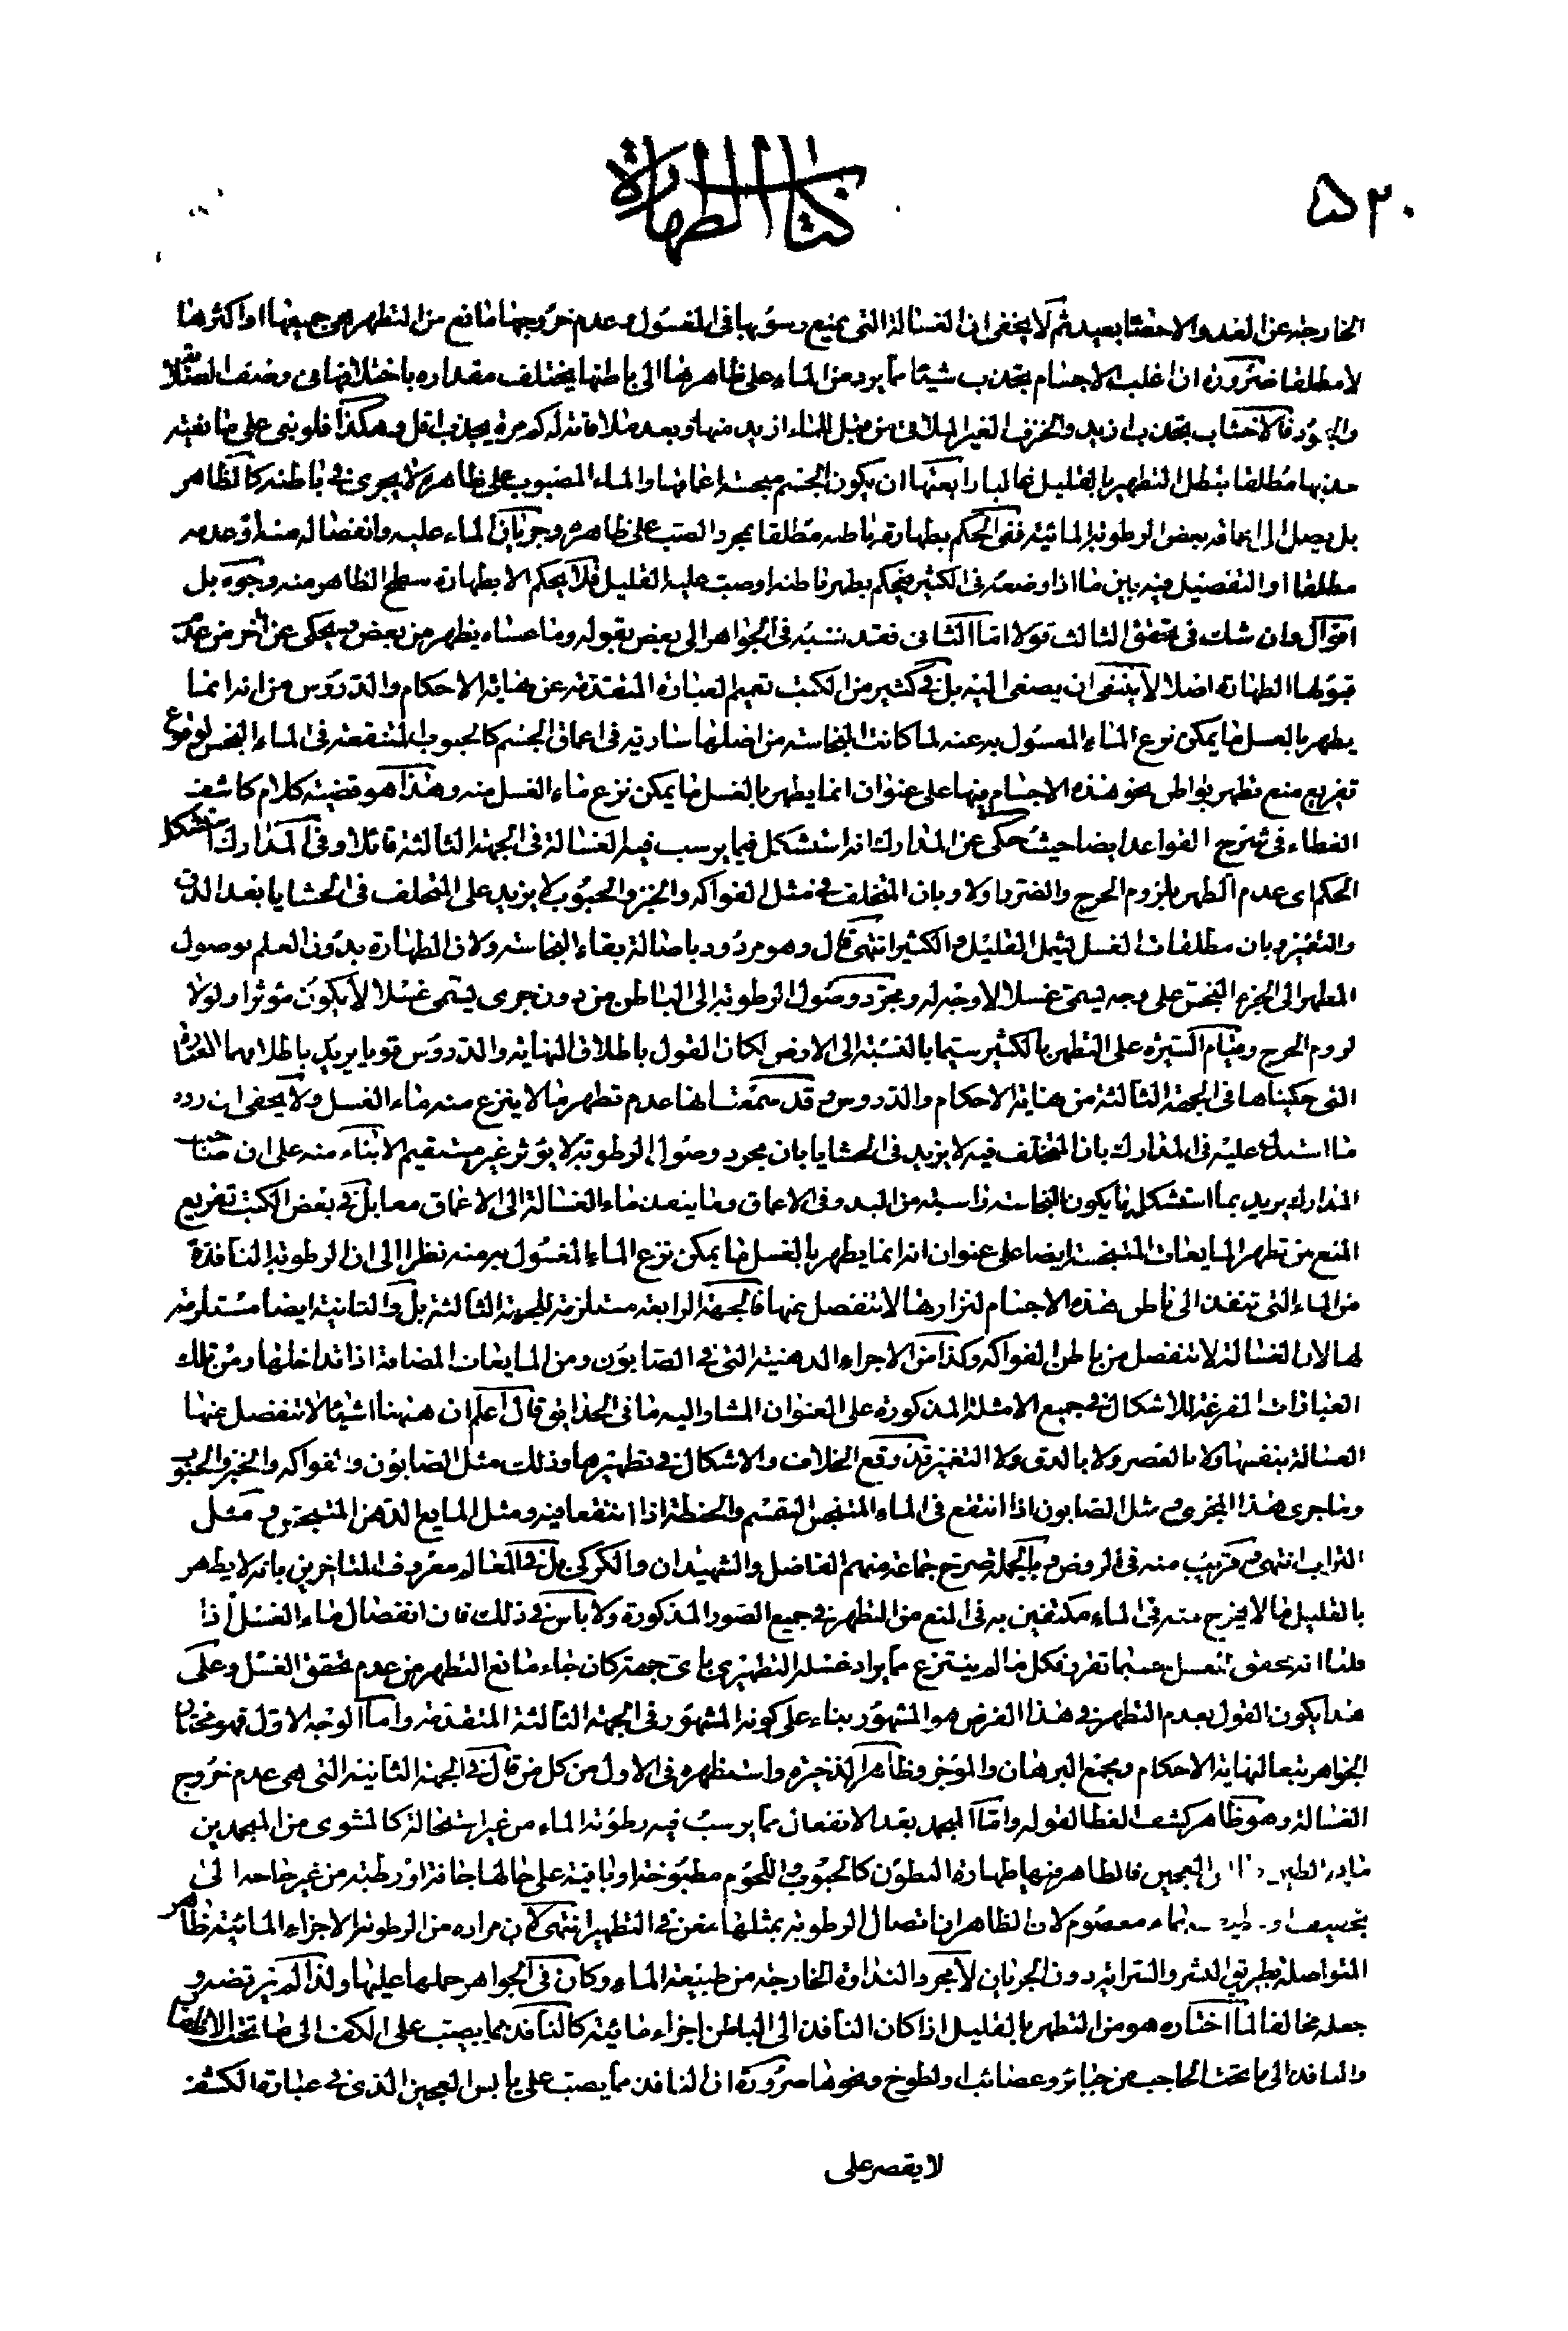 ٥٢٠
كتاب الطهارة
الخارجة عن العد والاحصاء بعيد ثم لا يخفى ان الغسالة التى يمنع رسوبها فى المغسول وعدم خروجها مانع من التطهير هى جميعها او اكثرها
لا مطلقا ضرورة ان اغلب الاجسام يجذب شيئا مما يرد من الماء على ظاهرها الى باطنها يختلف مقداره باختلافها فى وصف الصقالة
فالاخشاب تجذب ازيد والخزف الغير الملاقى من قبل للماء ازيد منها وبعد ملاقاته له كم مرة يجذب اقل وهكذا فلو بنى على مانعية
جذبها مطلقا بطل التطهير بالقليل غالبا رابعتها ان يكون الجسم مبحث اعماقها والماء المصبوب على ظاهره لا يجرى فى باطنه كالظاهر
بل يصل الى اعماقه بعض الرطوبة المائية ففى الحكم بطهارة باطنه مطلقا بمجرد الصب على ظاهره وجريان الماء عليه وانفصاله منه او عدمه
مطلقا او التفصيل فيه بين ما اذا وضعه فى الكثير فيحكم بطهر باطنه او صب عليه القليل فلا يحكم الا بطهارة سطح الظاهر منه وجوه بل
اقوال وان شك فى تحقق الثالث قولا اما الثانى فقد نسبه فى الجواهر الى بعض بقوله وما عساه يظهر من بعض ويحكى عن اخر من عدم
قبولها الطهارة اصلا لا ينبغى ان يصغى اليه بل فى كثير من الكتب تعميم العبارة المتقدمة عن نهاية الاحكام والدروس من انه انما
يطهر بالغسل ما يمكن نزع الماء المغسول به عنه لما كانت النجاسة من اصلها سارية فى اعماق الجسم كالحبوب المنتقعة فى الماء النجس لوقوع
تفريع منع تطهر بواطن نحو هذه الاجسام فيها على عنوان انما يطهر بالغسل ما يمكن نزع ماء الغسل منه وهذا هو قضية كلام كاشف
الغطاء فى شرح القواعد ايضا حيث حكى عن المدارك انه استشكل فيما يرسب فيه الغسالة فى الجهة الثالثة قائلا وفى المدارك استشكل
الحكم اى عدم الطهر بلزوم الحرج والضرر اولا وبان المتخلف فى مثل الفواكه والخبز والحبوب لا يزيد على المتخلف فى الحشايا بعد الدق
والتغميز وبان مطلقات الغسل يشمل القليل والكثير انتهى قال وهو مردود باصالة بقاء النجاسة ولان الطهارة بدون العلم بوصول
المطهر الى الجزء النجس على وجه يسمى غسلا لا وجه له ومجرد وصول الرطوبة الى الباطن من دون جرى يسمى غسلا لا يكون مؤثرا ولولا
لزوم الحرج وقيام السيرة على التطهر بالكثير سيما بالنسبة الى الارض لكان القول باطلاق النهاية والدروس قويا يريد باطلاقهما العبارة
التى حكيناها فى الجهة الثالثة من نهاية الاحكام والدروس وقد سمعت انها عدم تطهر ما لا ينزع منه ماء الغسل ولا يخفى ان رده
ما استدل عليه فى المدارك بان المتخلف فيه لا يزيد فى الحشايا بان مجرد وصول الرطوبة لا يؤثر غير مستقيم الا بناء منه على ان صاحب
المدارك يريد بما استشكله ما يكون النجاسة راسبة من البدو فى الاعماق وما ينفذ ماء الغسالة الى الاعماق معا بل فى بعض الكتب تفريع
المنع من تطهر المايعات المتنجسة ايضا على عنوان انه انما يطهر بالغسل ما يمكن نزع الماء المغسول به منه نظرا الى ان الرطوبة النافذة
من الماء التى تنفذ الى باطن هذه الاجسام لنزارتها لا تنفصل عنها فالجهة الرابعة مستلزمة للجهة الثالثة بل والثانية ايضا مستلزمة
لها لان الغسالة لا تنفصل من باطن الفواكه وكذا من الاجزاء الدهنية التى فى الصابون ومن المايعات المضافة اذا تداخلتها ومن تلك
العبارات المفرغة للاشكال فى جميع الامثلة المذكورة على العنوان المشار اليه ما فى الحدائق قال اعلم ان هيهنا اشياء لا تنفصل عنها
الغسالة بنفسها ولا بالعصر ولا بالدق ولا التغميز قد وقع الخلاف والاشكال فى تطهيرها وذلك مثل الصابون والفواكه والخبز والحبوب
وما جرى هذا المجرى ومثل الصابون اذا انتقع فى الماء المتنجس والسمسم والحنطة اذا انتقعا فيه ومثل المايع الدهن المتنجس ومثل
التراب انتهى وقريب منه فى الروض وبالجملة صرح جماعة منهم الفاضل والشهيدان والكركى بل فى المعالم معروف المتاخرين بانه لا يطهر
بالقليل ما لا يخرج منه فى الماء مكتفين به فى المنع من التطهر فى جميع الصور المذكورة ولا باس فى ذلك فان انفصال ماء الغسل اذا
قلنا انه يحقق الغسل حسبما تعرف فكل ما لم ينتزع مما يراد غسله التطهيرى باى جهة كان جاء مانع التطهر من عدم تحقق الغسل وعلى
هذا يكون القول بعدم التطهر فى هذا الفرض هو المشهور بناء على كونه المشهور فى الجهة الثالثة المتقدمة واما الوجه الاول فهو مختار
الجواهر تبعا لنهاية الاحكام ومجمع البرهان والموجز وظاهر الذخيرة واستظهره فى الاول من كل من قال فى الجهة الثانية التى هى عدم خروج
الغسالة وهو ظاهر كشف الغطا لقوله واما المجمد بعد الانفعال مما يرسب فيه رطوبة الماء من غير استحالة كالمشوى من المجمدين
والعجين فالظاهر فيها طهارة البطون كالحبوب واللحوم مطبوخة او باقية على حالها جافة او رطبة من غير حاجة الى
تجفيفها بماء معصوم لان الظاهر ان اتصال الرطوبة بمثلها مغن فى التطهير انتهى لان مراده من الرطوبة الاجزاء المائية ظاهر
المتواصلة بطريق النشر والسراية دون الجريان لا مجرد النداوة الخارجة من طبيعة الماء وكان فى الجواهر حملها عليها ولذا لم يرتضه و
جعله مخالفا لما اختاره هو من التطهر بالقليل اذا كان النافذ الى الباطن اجزاء مائية كالنافذ مما يصب على الكف الى ما تحت الاظفار
والنافذ الى ما تحت الحاجب من جبائر وعصائب ولطوخ ونحوها ضرورة ان النافذ مما يصب على يابس العجين الذى فى عبارة الكشف
لا يقصر على